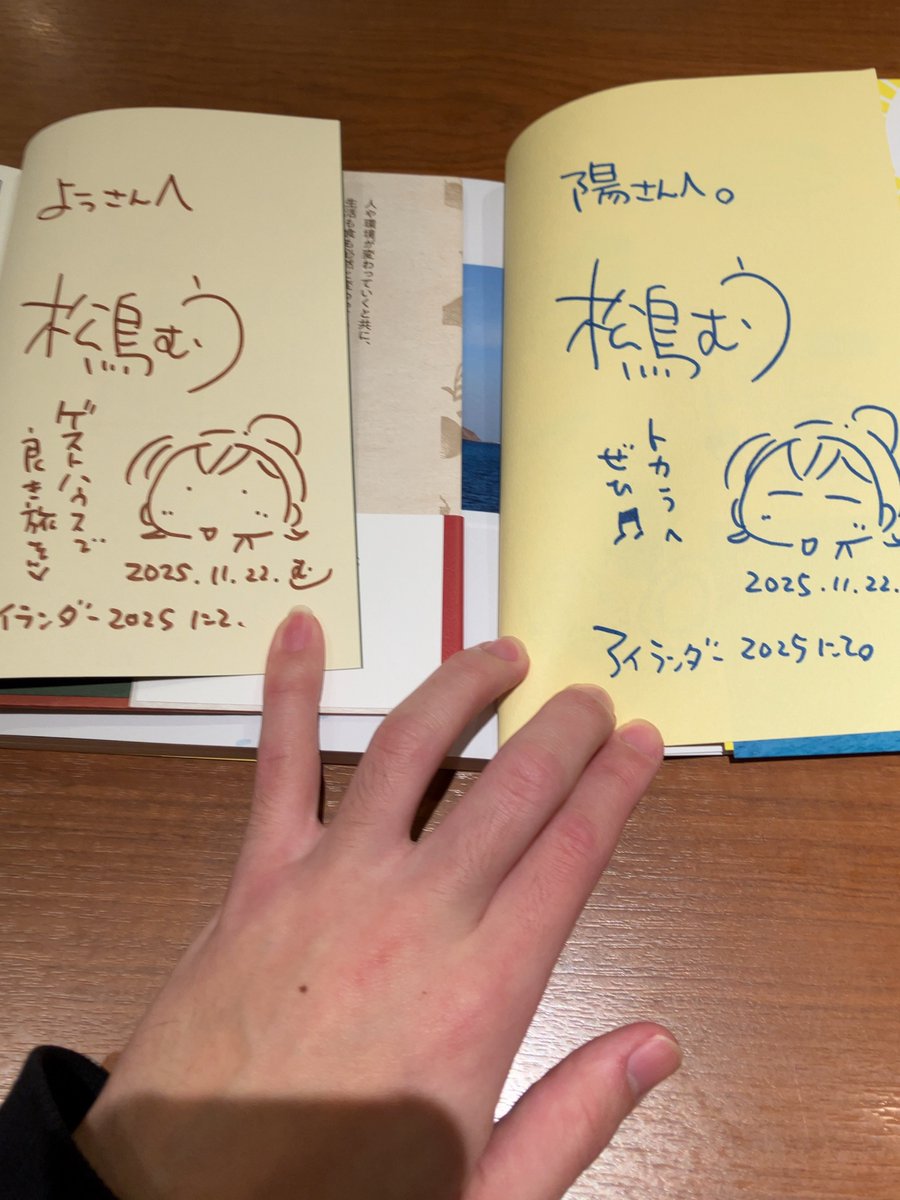 ようさんへ
松鳥むう
ゲストハウスで
良き旅を
2025.11.22.む
イランダー2025にて.
人や環境が変わっていくと共に、
陽さんへ。
松鳥むう
トカラへ
ぜひ♫
2025.11.22.
アイランダー2025にて。